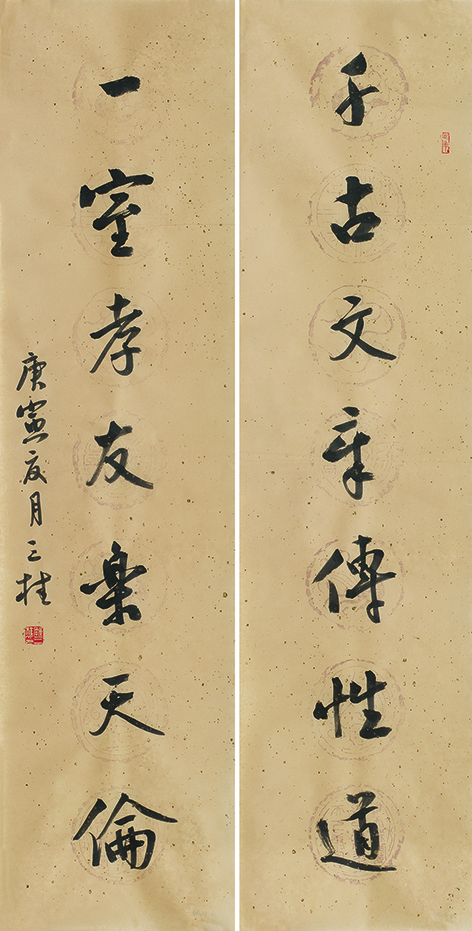 千古文章傳性道
一室孝友樂天倫
庚寅夏月三桂